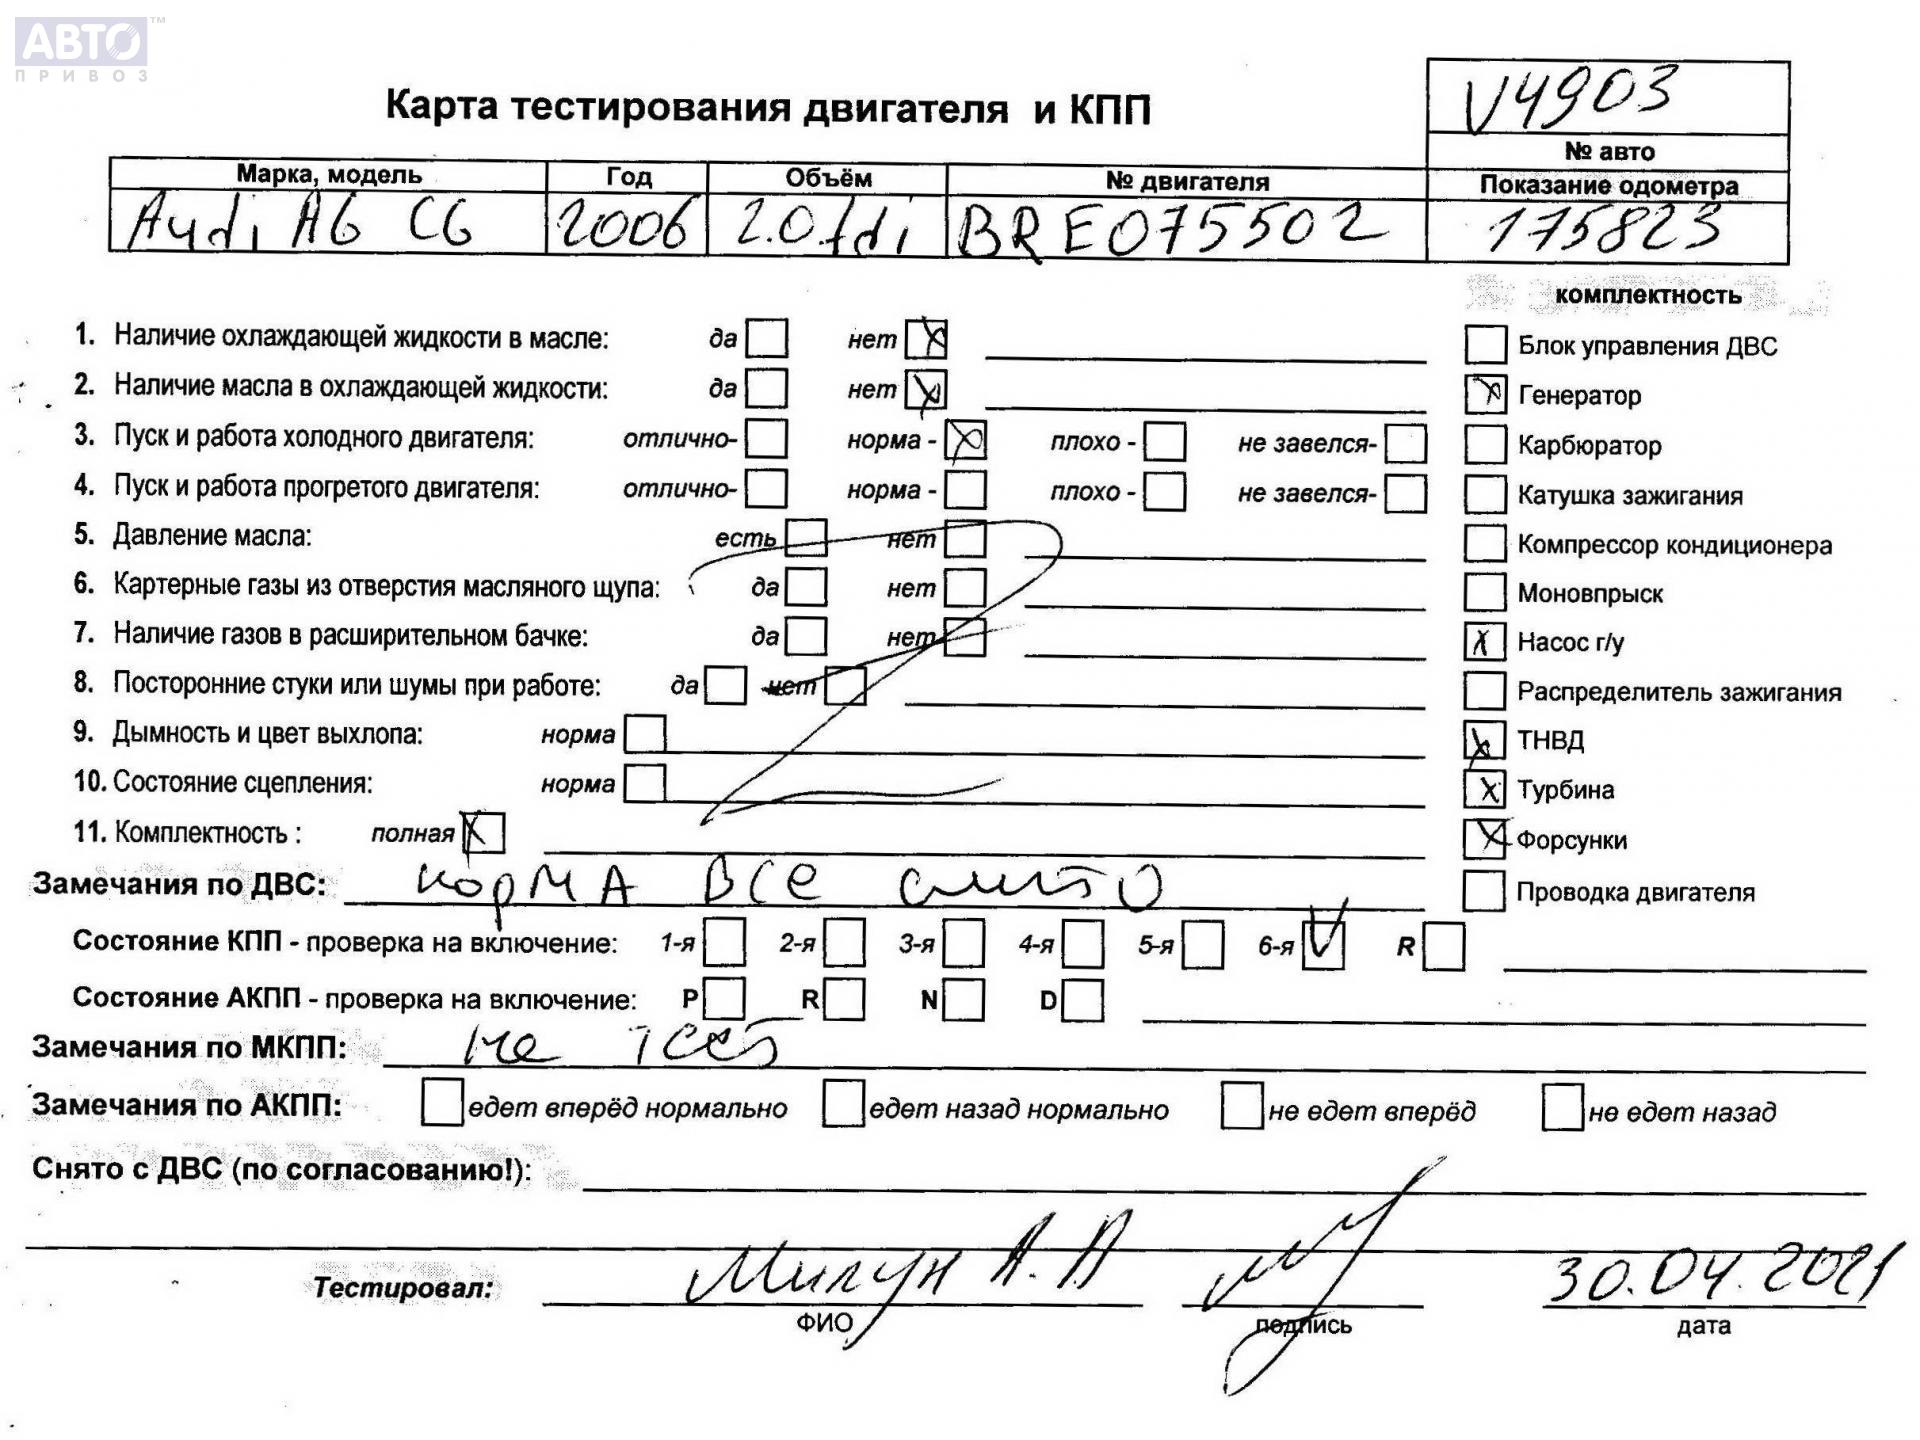 АВТО™
ПРИВОЗ
V4903
Карта тестирования двигателя и КПП
№ авто
Марка, модель Год Объём № двигателя Показание одометра
Audi A6 C6 2006 2.0 tdi BRE075502 175823
комплектность
1. Наличие охлаждающей жидкости в масле: да нет x Блок управления ДВС
2. Наличие масла в охлаждающей жидкости: да нет x x Генератор
3. Пуск и работа холодного двигателя: отлично- норма - x плохо - не завелся- Карбюратор
4. Пуск и работа прогретого двигателя: отлично- норма - плохо - не завелся- Катушка зажигания
5. Давление масла: есть нет Компрессор кондиционера
6. Картерные газы из отверстия масляного щупа: да нет Моновпрыск
7. Наличие газов в расширительном бачке: да нет x Насос г/у
8. Посторонние стуки или шумы при работе: да нет Распределитель зажигания
9. Дымность и цвет выхлопа: норма x ТНВД
10. Состояние сцепления: норма x Турбина
11. Комплектность : полная x x Форсунки
Замечания по ДВС: норма все Проводка двигателя
Состояние КПП - проверка на включение: 1-я 2-я 3-я 4-я 5-я 6-я V R
Состояние АКПП - проверка на включение: P R N D
Замечания по МКПП: не тест
Замечания по АКПП: едет вперёд нормально едет назад нормально не едет вперёд не едет назад
Снято с ДВС (по согласованию!):
Тестировал: Милун А.А 30.04.2021
ФИО подпись дата